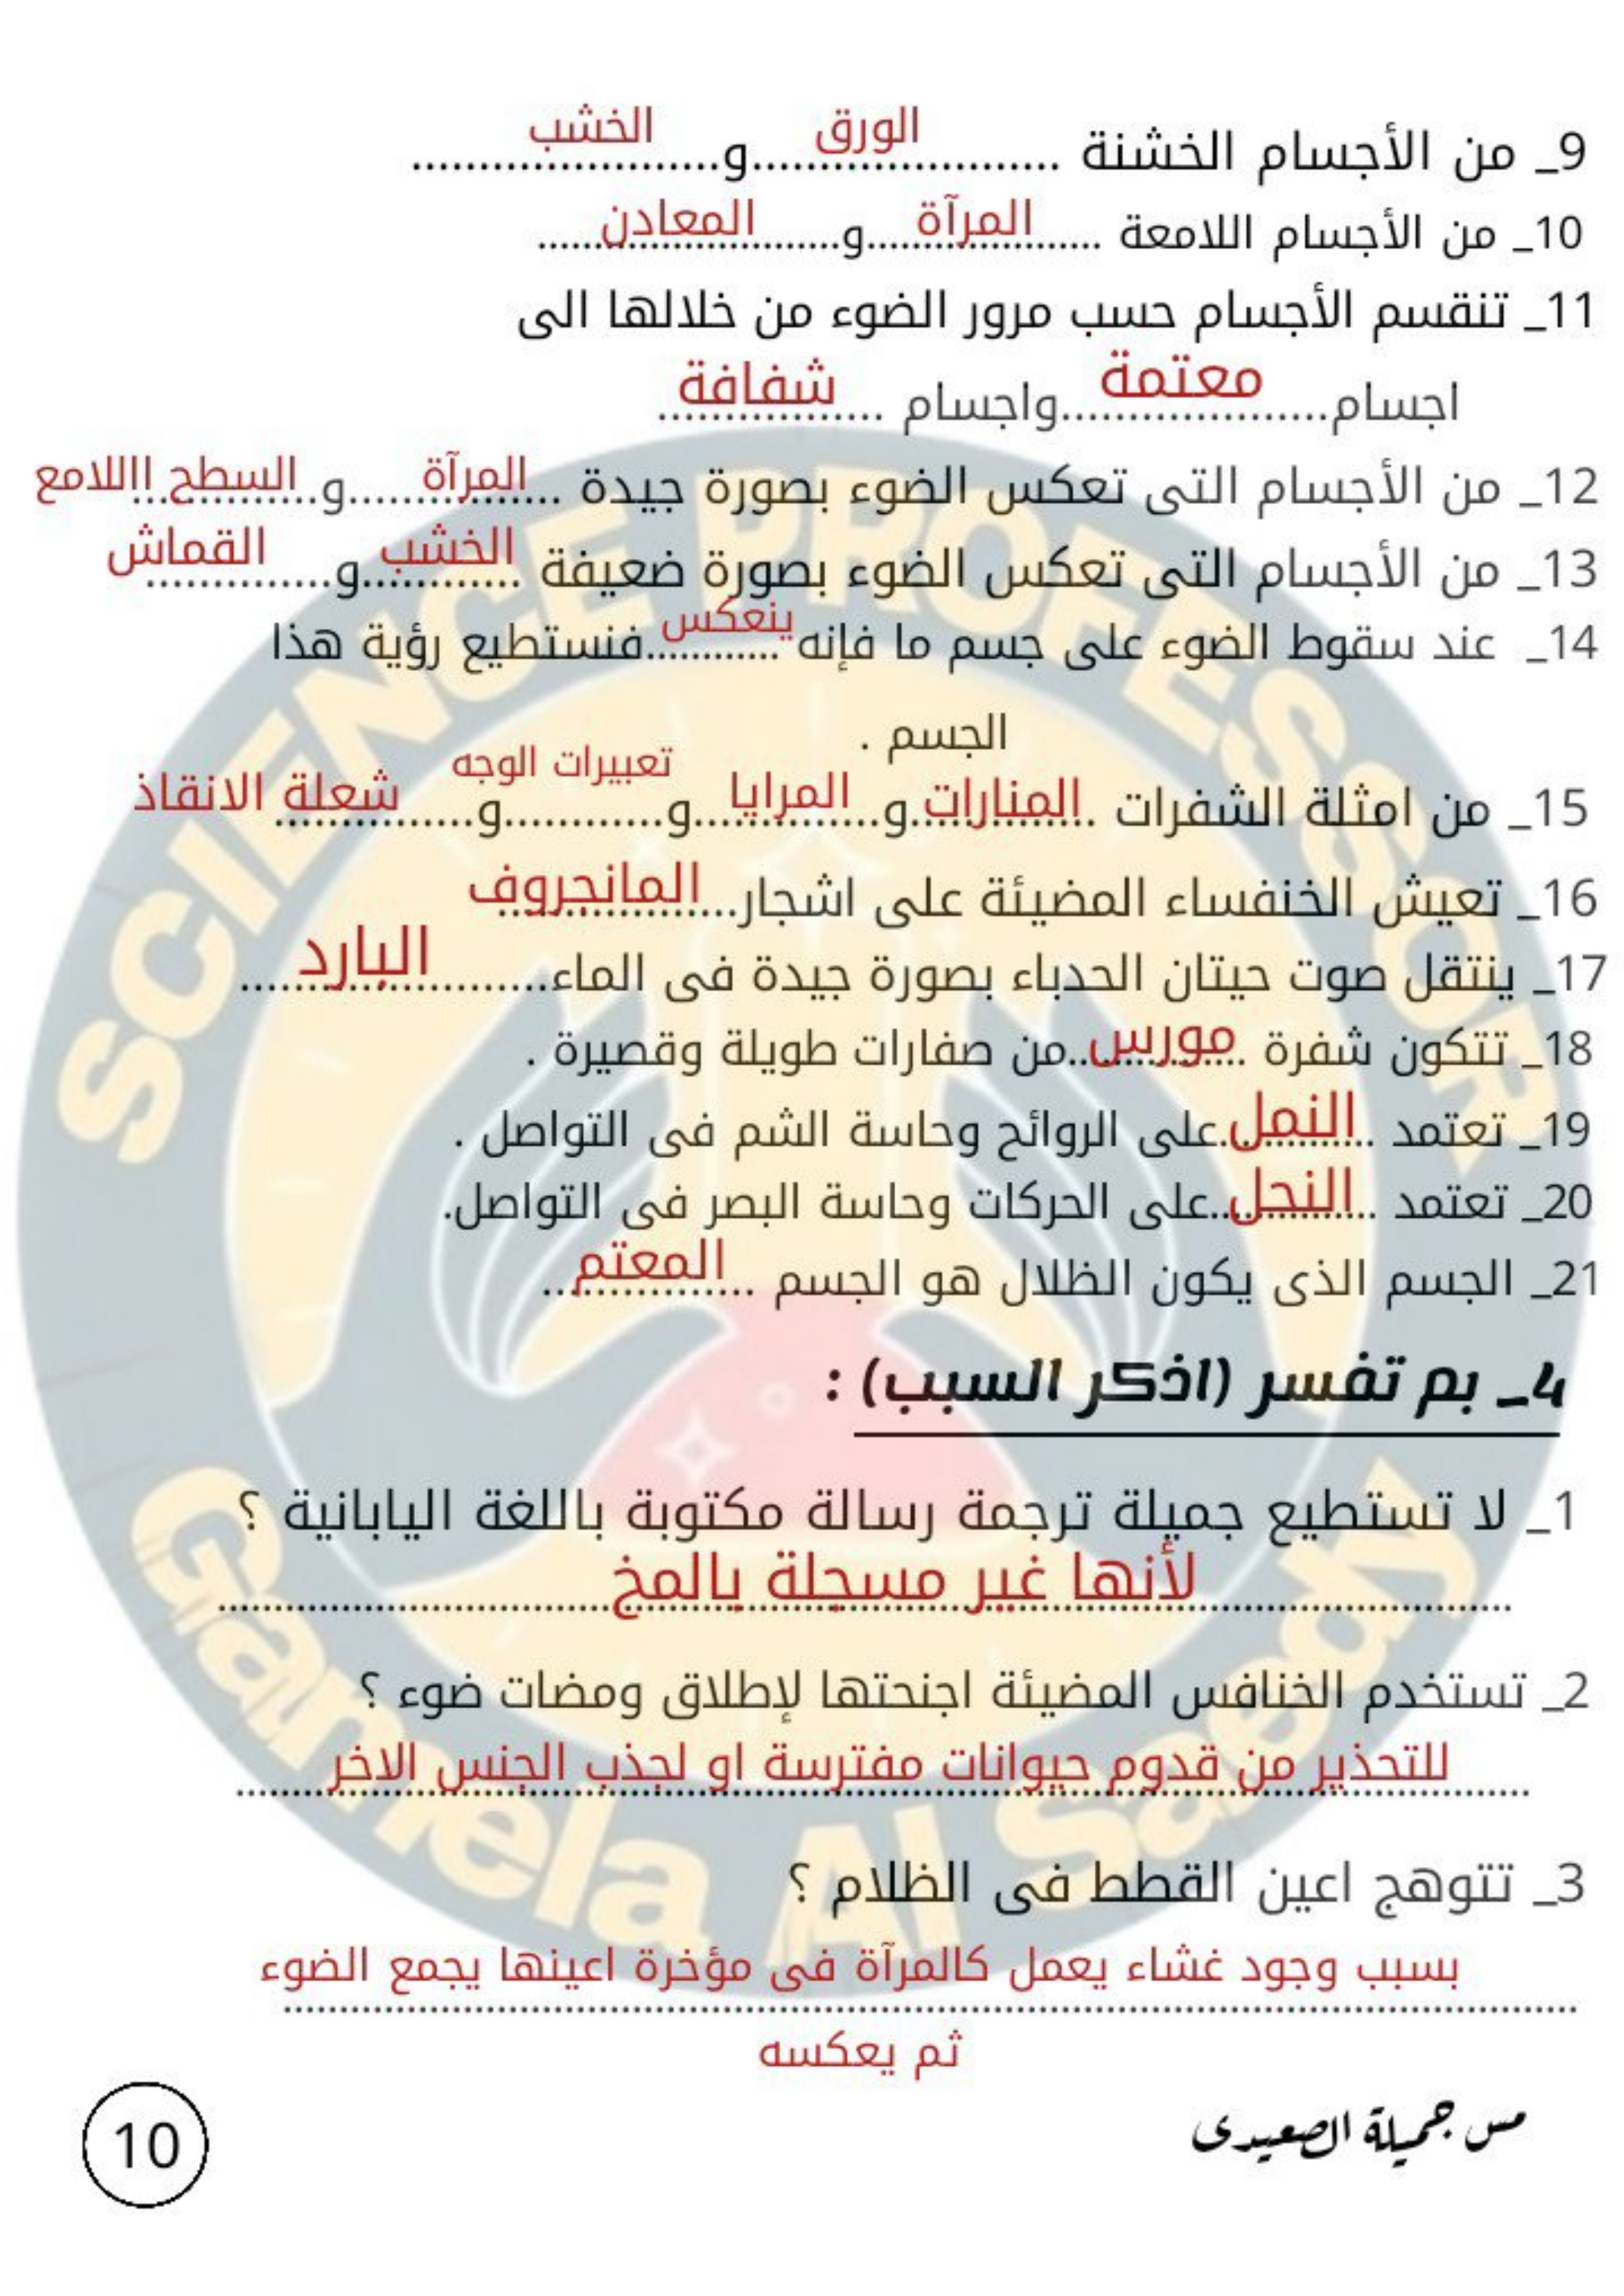 9_ من الأجسام الخشنة ......الورق......و......الخشب......
10_ من الأجسام اللامعة ......المرآة......و......المعادن......
11_ تنقسم الأجسام حسب مرور الضوء من خلالها الى
اجسام......معتمة......واجسام ......شفافة......
12_ من الأجسام التى تعكس الضوء بصورة جيدة ......المرآة......و......السطح االلامع
13_ من الأجسام التى تعكس الضوء بصورة ضعيفة ......الخشب......و......القماش
14_ عند سقوط الضوء على جسم ما فإنه ......ينعكس......فنستطيع رؤية هذا
الجسم .
15_ من امثلة الشفرات ......المنارات......و......المرايا......و......تعبيرات الوجه......و......شعلة الانقاذ
16_ تعيش الخنفساء المضيئة على اشجار......المانجروف
17_ ينتقل صوت حيتان الحدباء بصورة جيدة فى الماء......البارد......
18_ تتكون شفرة ......مورس......من صفارات طويلة وقصيرة .
19_ تعتمد ......النمل......على الروائح وحاسة الشم فى التواصل .
20_ تعتمد ......النحل......على الحركات وحاسة البصر فى التواصل.
21_ الجسم الذى يكون الظلال هو الجسم ......المعتم......
4_ بم تفسر (اذكر السبب) :
1_ لا تستطيع جميلة ترجمة رسالة مكتوبة باللغة اليابانية ؟
لأنها غير مسجلة بالمخ
2_ تستخدم الخنافس المضيئة اجنحتها لإطلاق ومضات ضوء ؟
للتحذير من قدوم حيوانات مفترسة او لجذب الجنس الاخر
3_ تتوهج اعين القطط فى الظلام ؟
بسبب وجود غشاء يعمل كالمرآة فى مؤخرة اعينها يجمع الضوء
ثم يعكسه
مس جميلة الصعيدى
10
SCIENCE PROFESSOR
Gamela Al Saedy